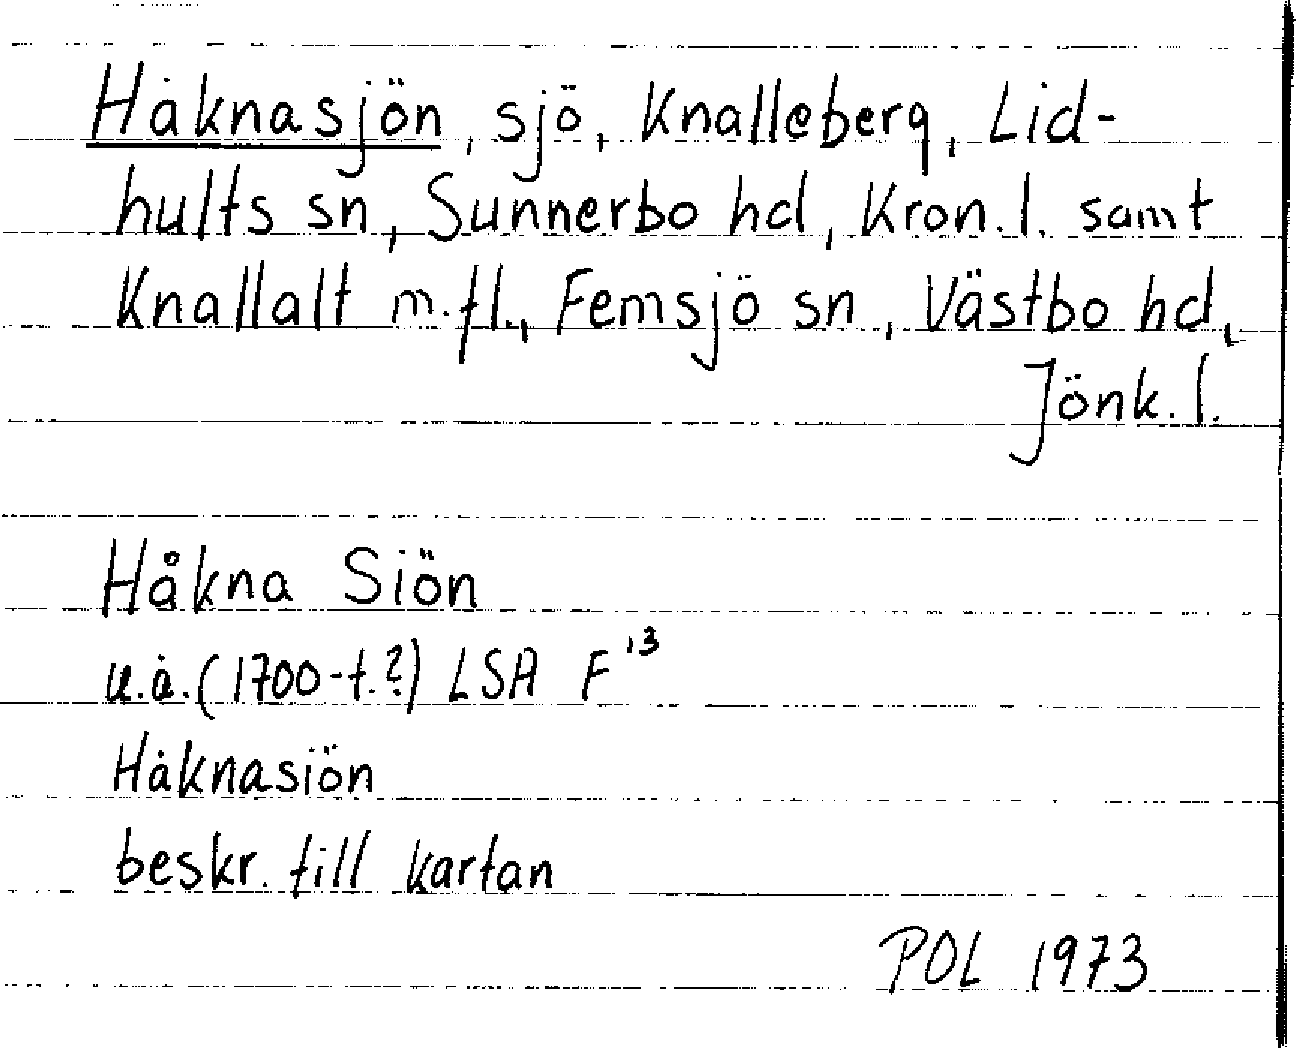 Håknasjön, sjö, Knalleberg, Lid-
hults sn, Sunnerbo hd, Kron.l. samt
Knallalt m.fl., Femsjö sn, Västbo hd,
Jönk.l.
Håkna Siön
u.å.(1700-t.?) LSA F¹³
Håknasiön
beskr. till kartan
POL 1973